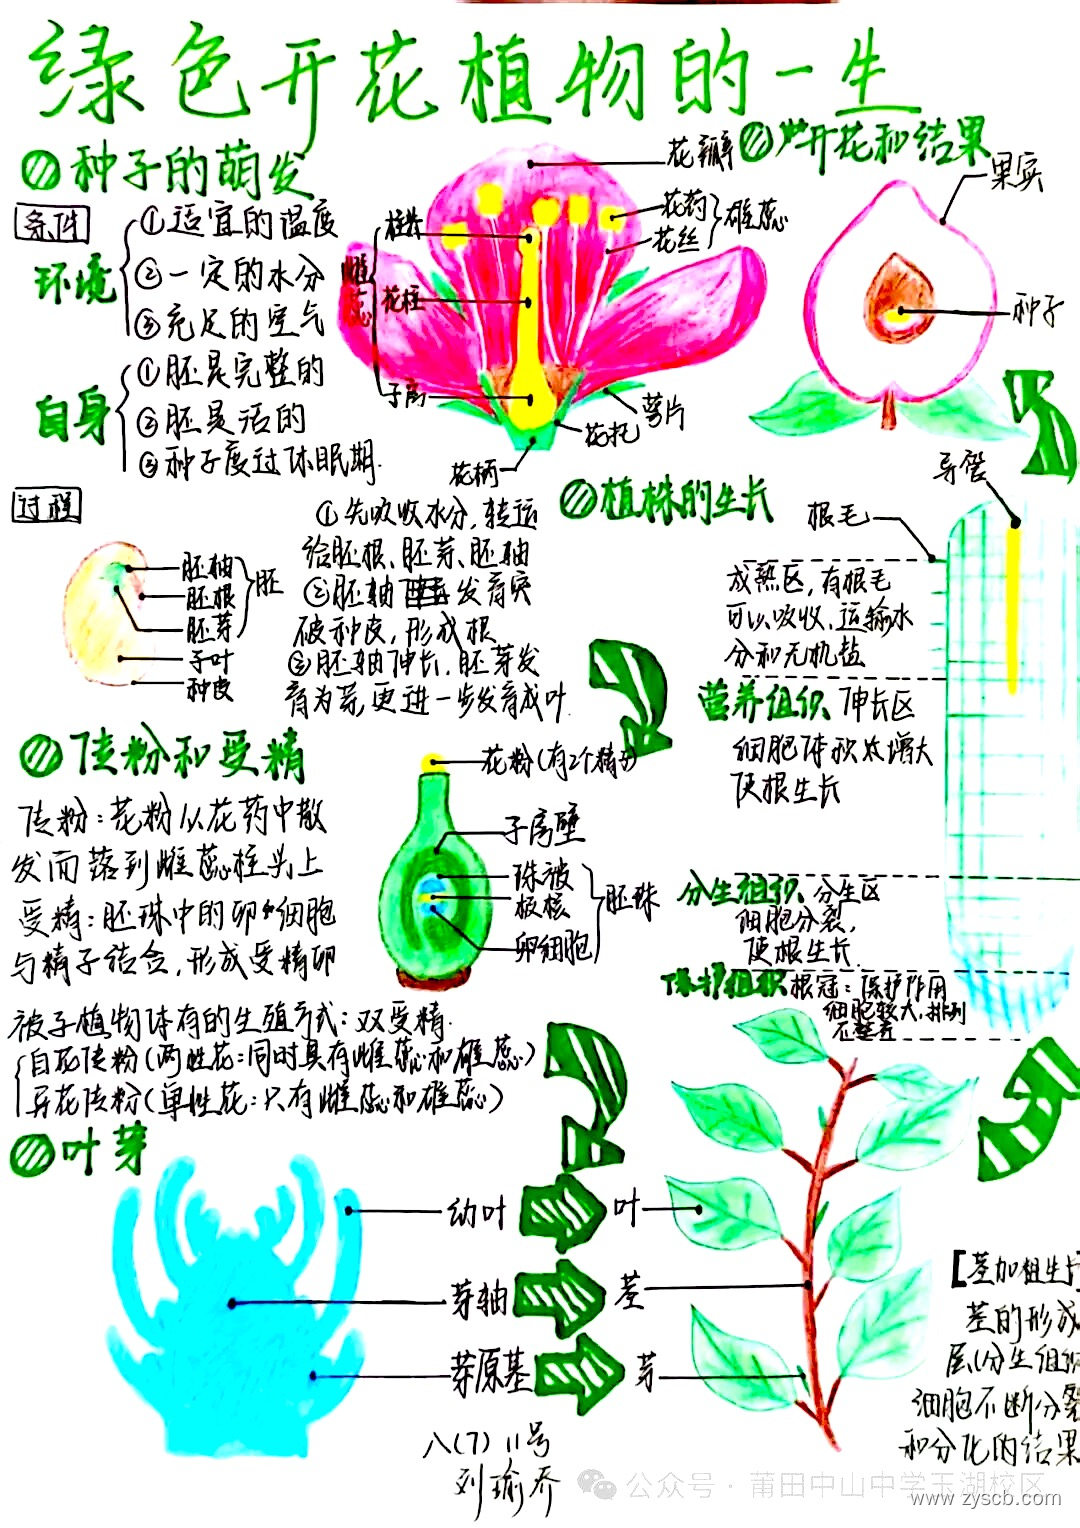 绿色开花植物的一生
种子的萌发
条件
环境
①适宜的温度
②一定的水分
③充足的空气
自身
①胚是完整的
②胚是活的
③种子度过休眠期.
花瓣
花药
花丝
雄蕊
柱头
花柱
子房
雌蕊
萼片
花托
花柄
开花和结果
果实
种子
过程
胚轴
胚根
胚芽
胚
子叶
种皮
①先吸收水分,转运
给胚根、胚芽、胚轴
②胚轴发育突
破种皮,形成根
③胚轴伸长,胚芽发
育为芽,更进一步发育成叶.
植株的生长
导管
根毛
成熟区,有根毛
可以吸收、运输水
分和无机盐
营养组织 伸长区
细胞体积太增大
使根生长
分生组织 分生区
细胞分裂,
使根生长.
保护组织 根冠:保护作用
细胞较大,排列
不整齐
传粉和受精
传粉:花粉从花药中散
发而落到雌蕊柱头上
受精:胚珠中的卵细胞
与精子结合,形成受精卵
花粉(有2个精子)
子房壁
珠被
极核
卵细胞
胚珠
被子植物体有的生殖方式:双受精.
自花传粉(两性花:同时具有雌蕊和雄蕊)
异花传粉(单性花:只有雌蕊和雄蕊)
叶芽
幼叶
叶
芽轴
茎
芽原基
芽
[茎加粗生长
茎的形成
层(分生组织
细胞不断分裂
和分化的结果
八(7) 11号
刘瑜乔
公众号·莆田中山中学玉湖校区
www.zyscb.com